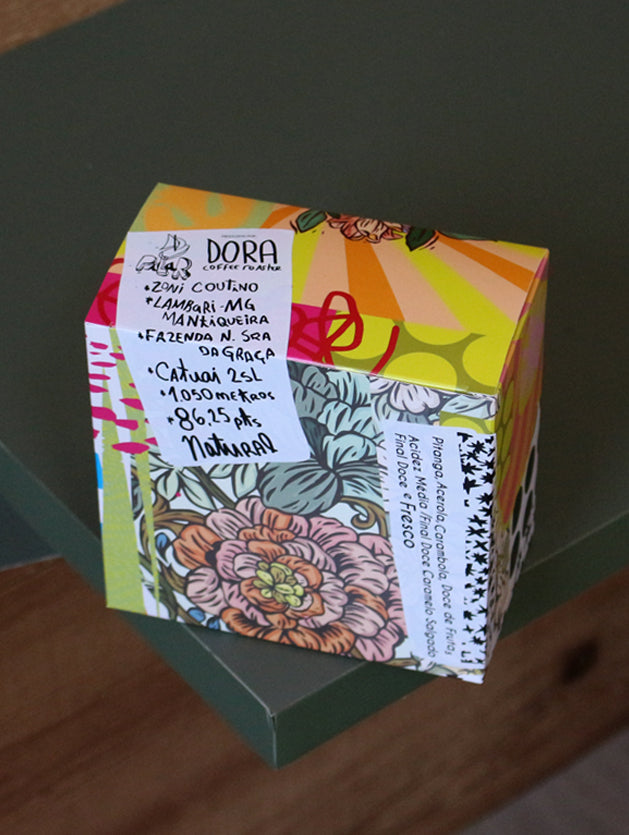 DORA
COFFEE ROASTER
*ZONI COUTINO
*LAMBARI-MG
MANTIQUEIRA
*FAZENDA N. SRA
DA GRAÇA
*CATUAI 2SL
*1.050 METROS
*86,25 pts
Natural
Pitanga, Acerola, Carambola, Doce de Frutas,
Acidez Média /Final Doce Caramelo Salgado
Final Doce e Fresco